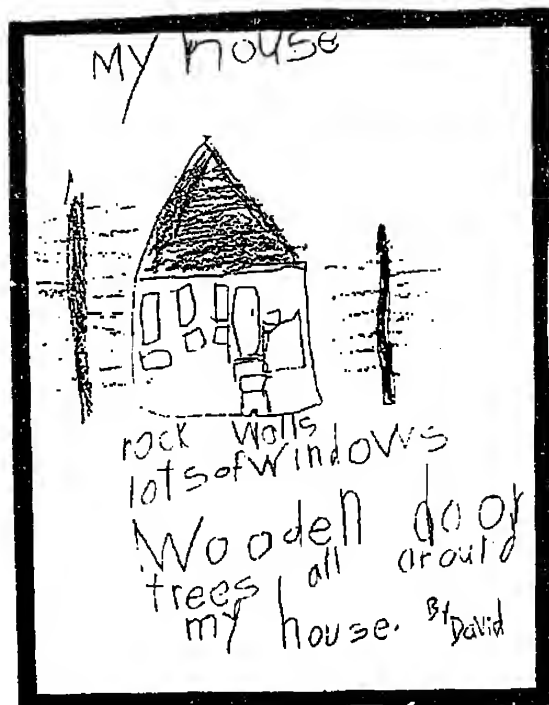 My house
rock Walls
lots of Windows
Wooden door
trees all around
my house. By
David